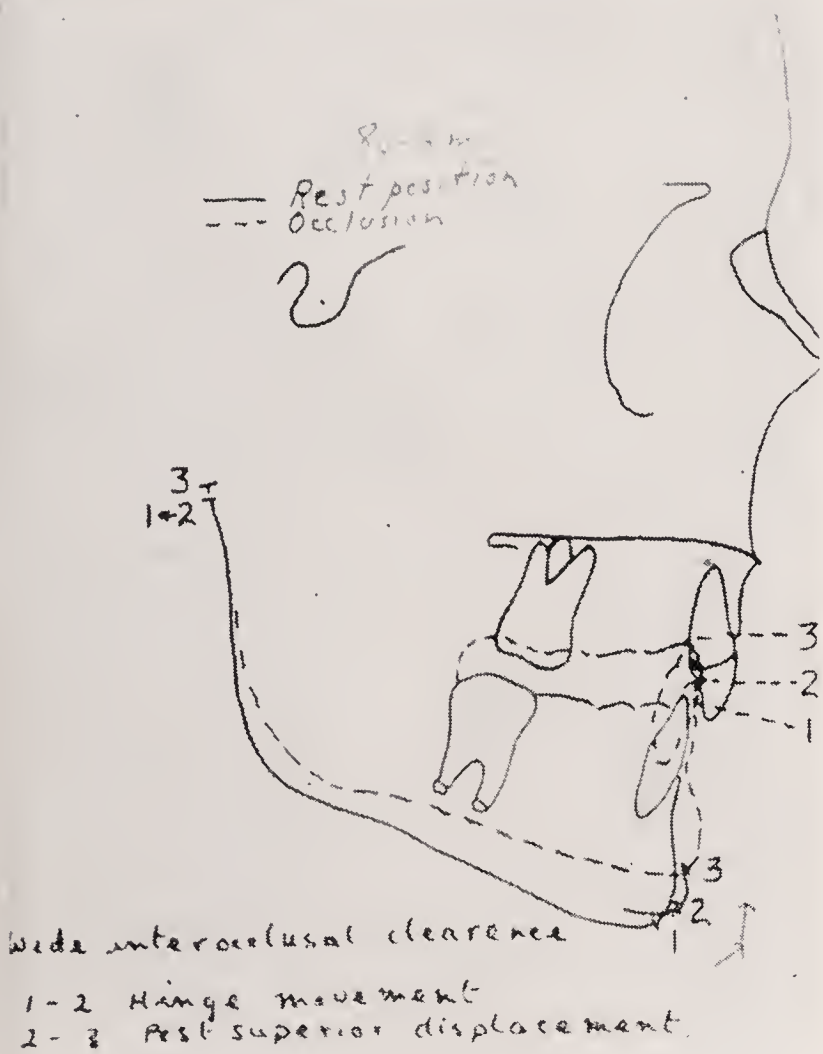 Rest position
Occlusion
3
1+2
3
2
1
3
2
1
Wide interocclusal clearence
1-2 Hinge movement
2-3 Post superior displacement.